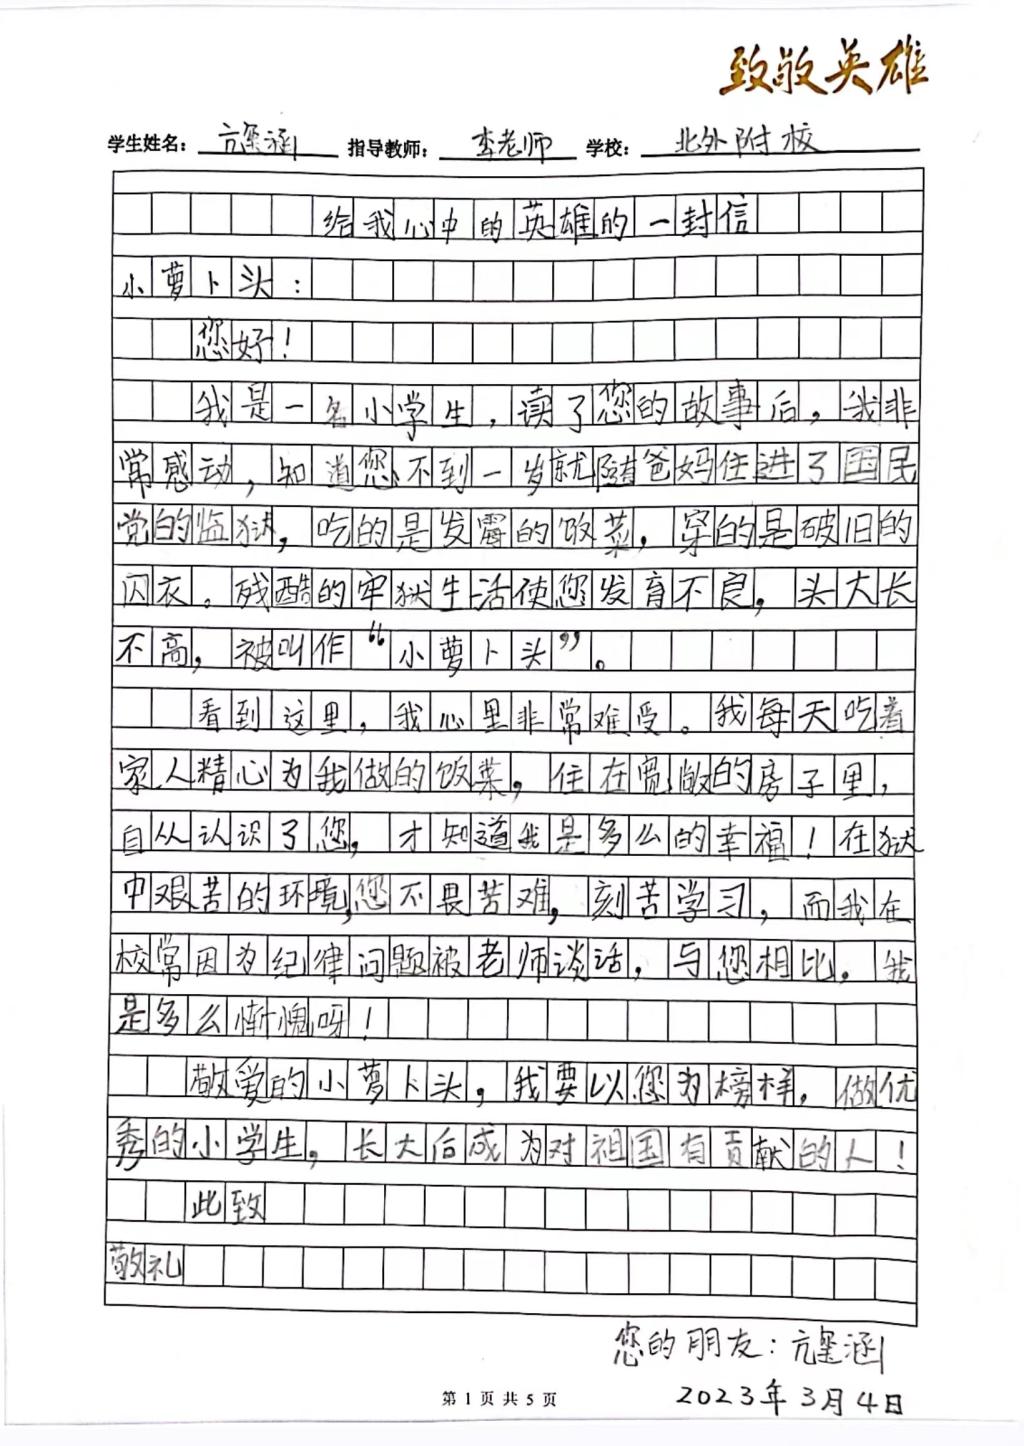 致敬英雄
学生姓名：亢玺涵 指导教师：李老师 学校：北外附校
给我心中的英雄的一封信
小萝卜头：
您好！
我是一名小学生，读了您的故事后，我非
常感动，知道您不到一岁就随爸妈住进了国民
党的监狱，吃的是发霉的饭菜，穿的是破旧的
囚衣。残酷的牢狱生活使您发育不良，头大长
不高，被叫作“小萝卜头”。
看到这里，我心里非常难受。我每天吃着
家人精心为我做的饭菜，住在宽敞的房子里，
自从认识了您，才知道我是多么的幸福！在狱
中艰苦的环境，您不畏苦难，刻苦学习，而我在
校常因为纪律问题被老师谈话，与您相比，我
是多么惭愧呀！
敬爱的小萝卜头，我要以您为榜样，做优
秀的小学生，长大后成为对祖国有贡献的人！
此致
敬礼
您的朋友：亢玺涵
第1页共5页
2023年3月4日